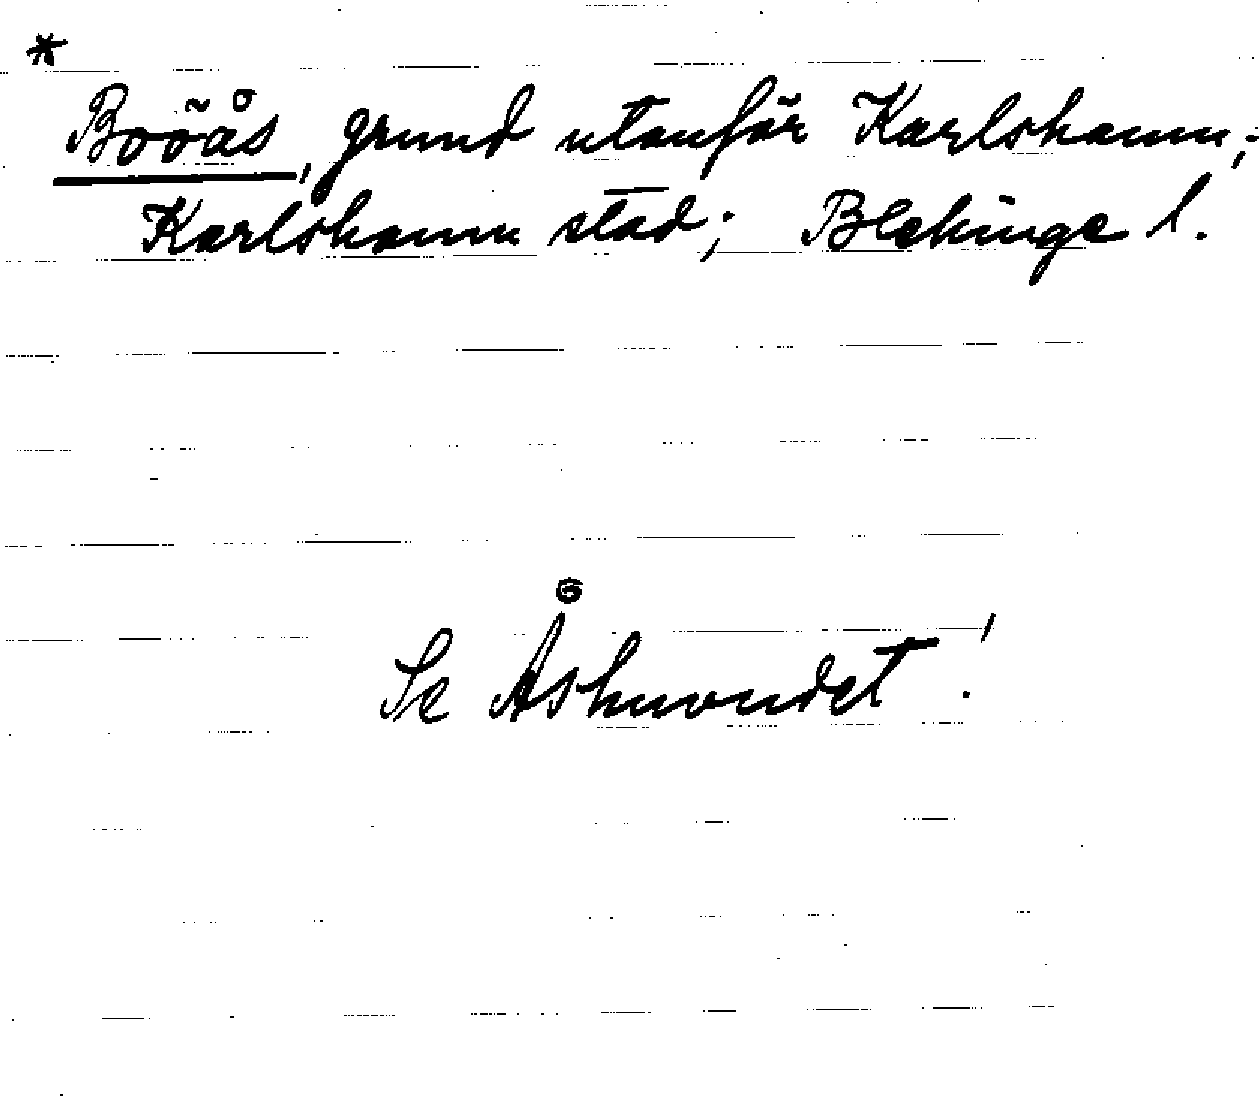 *
Boöås, grund utanför Karlshamn;
Karlshamn stad; Blekinge l.
Se Åshuvudet!